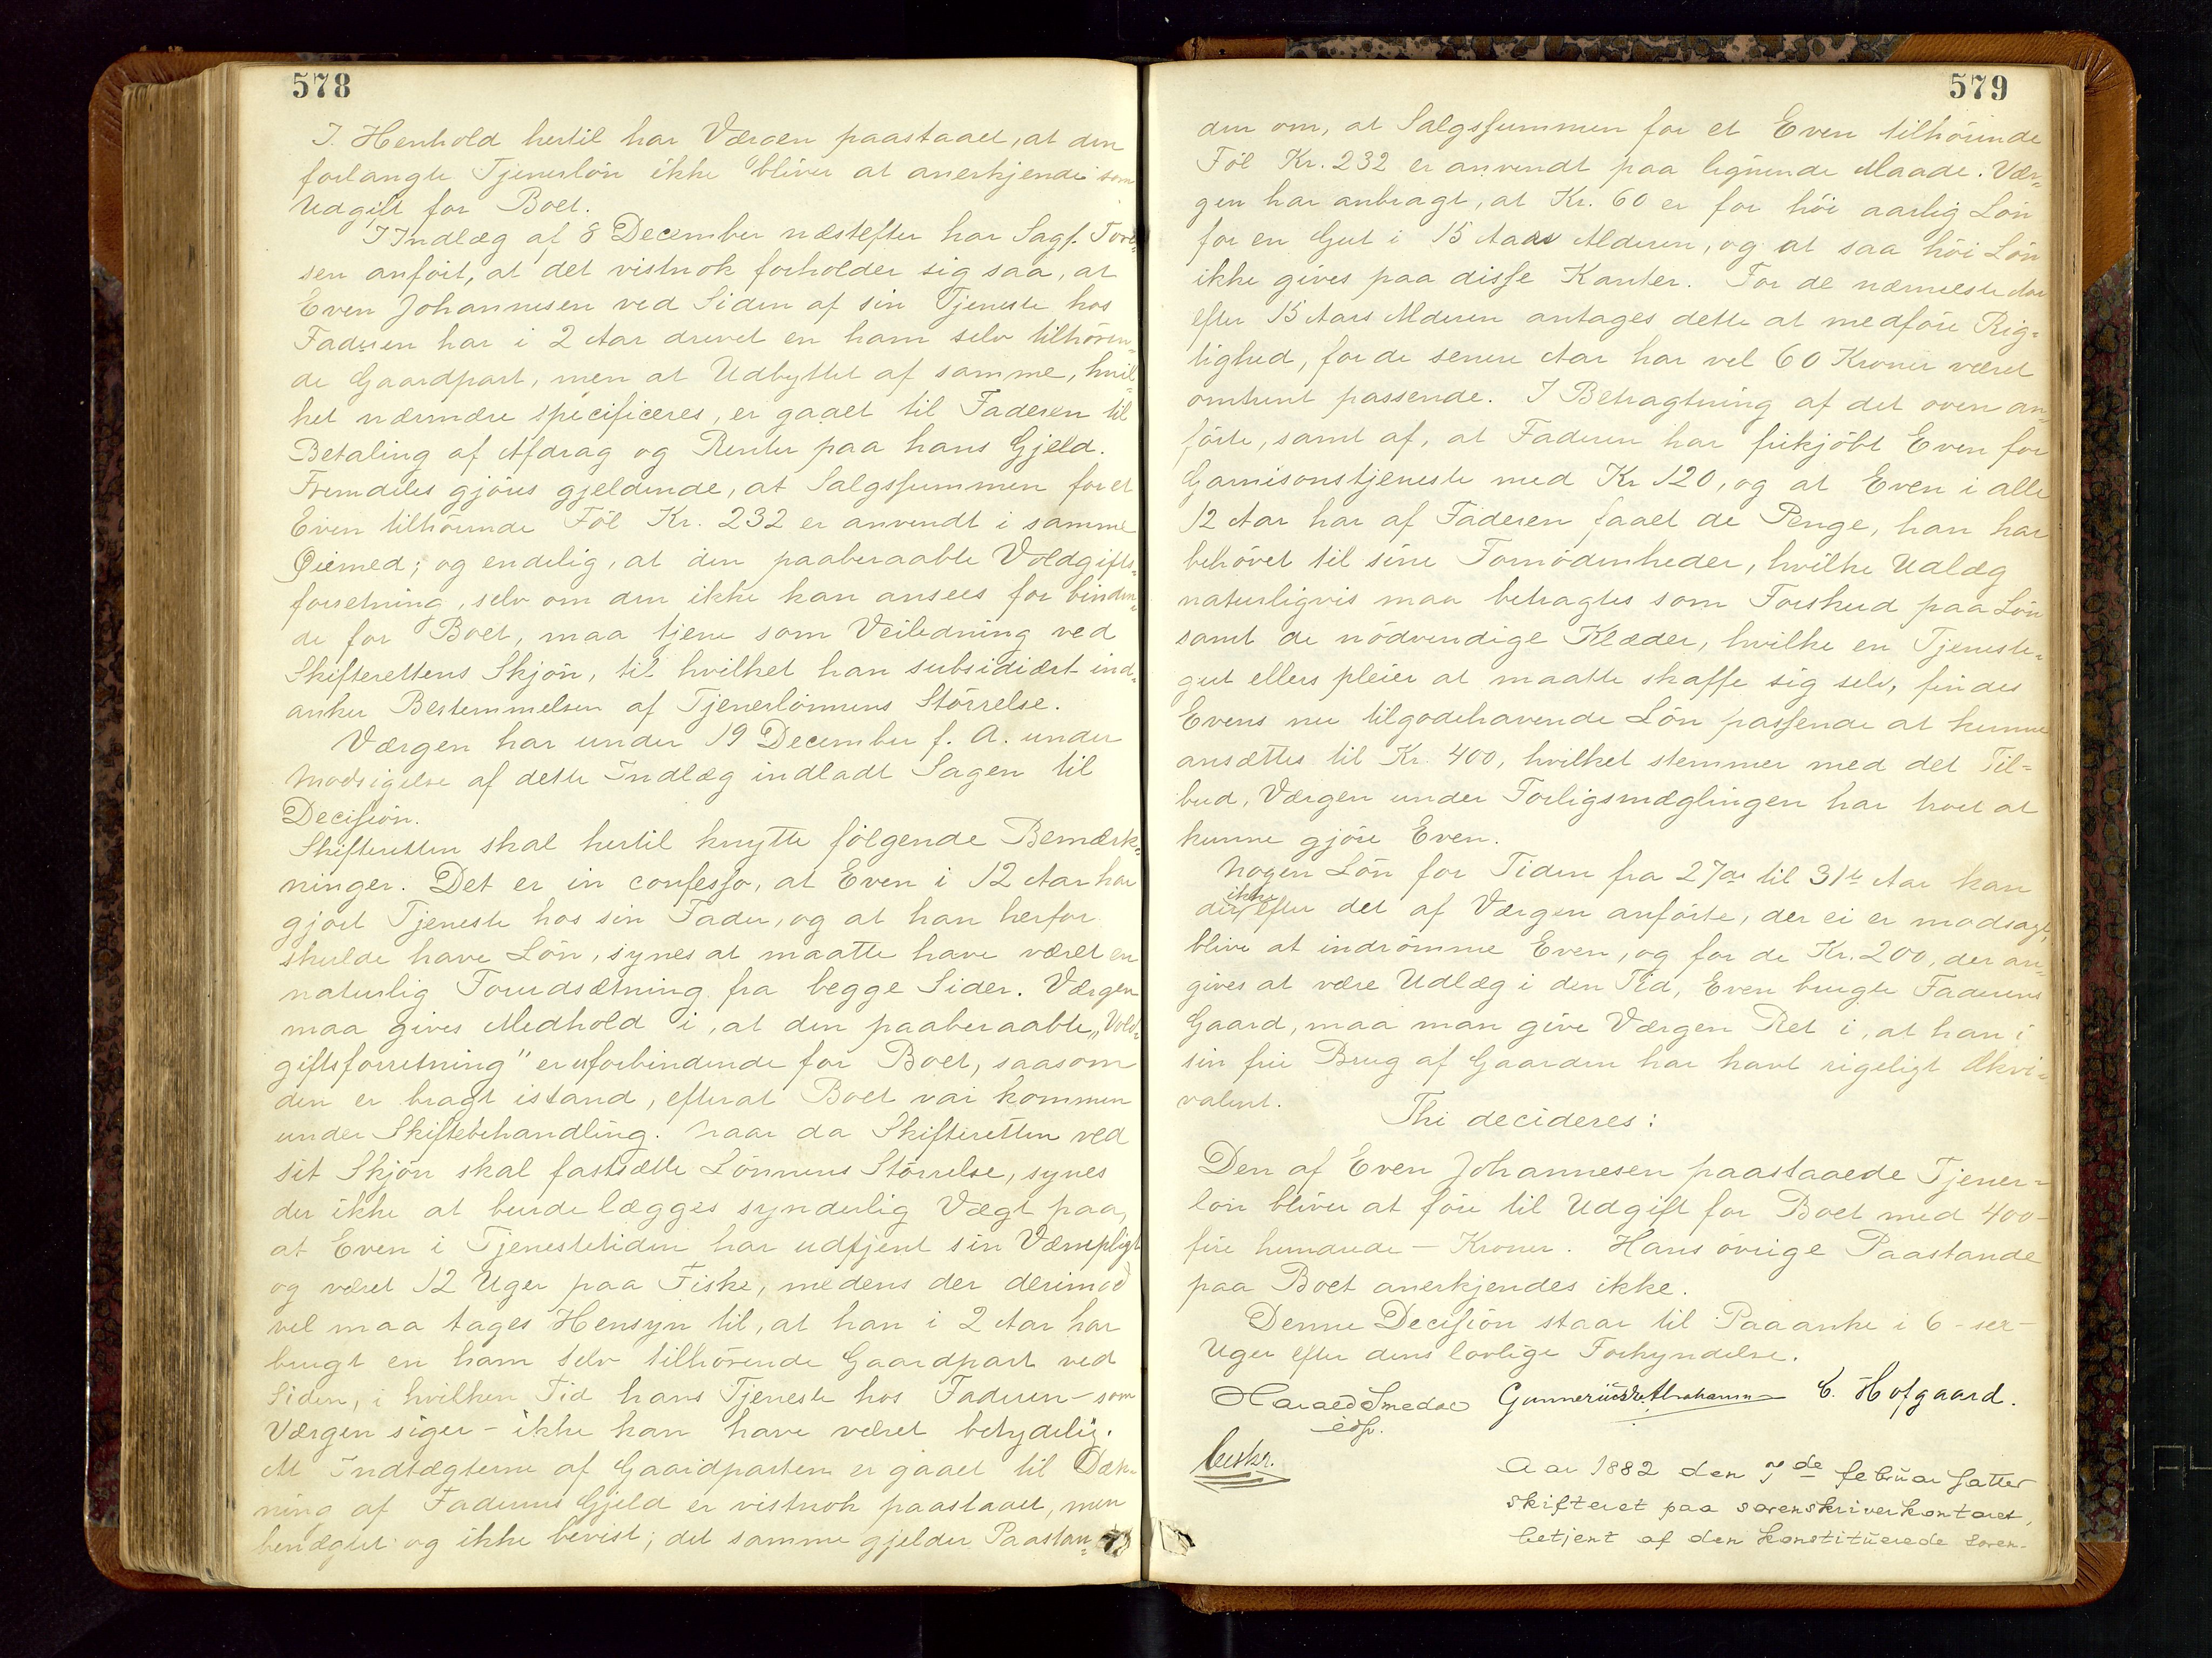 578
I. Henhold hertil har Værgen paastaaet, at den
forlangte Tjenerløn ikke bliver at anerkjende som
Udgift for Boet.
I Indlæg af 8 December næstefter har Sagf. Tore-
sen anført, at det vistnok forholder sig saa, at
Even Johannesen ved Siden af sin Tjeneste hos
Faderen har i 2 Aar drevet en ham selv tilhøren-
de Gaardpart, men at Udbyttet af samme, hvil-
ket nærmere specificeres, er gaaet til Faderen til
Betaling af Afdrag og Renter paa hans Gjeld.
Fremdeles gjøres gjeldende, at Salgssummen for et
Even tilhørende Føl Kr. 232 er anvendt i samme
Øiemed; og endelig, at den paaberaabte Voldgifts-
forretning, selv om den ikke kan ansees for binden-
de for Boet, maa tjene som Veiledning ved
Skifterettens Skjøn, til hvilket han subsidiært ind-
anker Bestemmelsen af Tjenerlønnens Størrelse.
Værgen har under 19 December f. A. under
Modsigelse af dette Indlæg indladt Sagen til
Decision.
Skifteretten skal hertil knytte følgende Bemærk-
ninger. Det er in confesso, at Even i 12 Aar har
gjort Tjeneste hos sin Fader, og at han herfor
skulde have Løn, synes at maatte have været en
naturlig Forudsætning fra begge Sider. Værgen
maa gives Medhold i, at den paaberaabte „Vold-
giftsforretning" er uforbindende for Boet, saasom
den er bragt istand, efterat Boet var kommen
under Skiftebehandling. Naar da Skifteretten ved
sit Skjøn skal fastsætte Lønnens Størrelse, synes
der ikke at burde lægges synderlig Vægt paa,
at Even i Tjenestetiden har udtjent sin Værnepligt
og været 12 Uger paa Fiske, medens der derimod
vel maa tages Hensyn til, at han i 2 Aar har
brugt en ham selv tilhørende Gaardpart ved
Siden, i hvilken Tid hans Tjeneste hos Faderen - som
Værgen siger - ikke kan have været betydelig.
At Indtægterne af Gaardparten er gaaet til Dæk-
ning af Faderens Gjeld er vistnok paastaaet, men
benægtet og ikke bevist; det samme gjelder Paastan-
579
den om, at Salgssummen for et Even tilhørende
Føl Kr. 232 er anvendt paa lignende Maade. Vær-
gen har anbragt, at Kr. 60 er for høi aarlig Løn
for en Gut i 15 Aars Alderen, og at saa høi Løn
ikke gives paa disse Kanter. For de nærmeste Aar
efter 15 Aars Alderen antages dette at medføre Rig-
tighed, for de senere Aar har vel 60 Kroner været
omtrent passende. I Betragtning af det oven an-
førte, samt af, at Faderen har frikjøbt Even for
Garnisonstjeneste med Kr 120, og at Even i alle
12 Aar har af Faderen faaet de Penge, han har
behøvet til sine Fornødenheder, hvilke Udlæg
naturligvis maa betragtes som Forskud paa Løn
samt de nødvendige Klæder, hvilke en Tjeneste-
gut ellers pleier at maatte skaffe sig selv, findes
Evens nu tilgodehavende Løn passende at kunne
ansættes til Kr. 400, hvilket stemmer med det Til-
bud, Værgen under Forligsmæglingen har troet at
kunne gjøre Even.
Nogen Løn for Tiden fra 27de til 31te Aar kan
der ikke efter det af Værgen anførte, der ei er modsagt,
blive at indrømme Even, og for de Kr. 200, der an-
gives at være Udlæg i den Tid, Even brugte Faderens
Gaard, maa man give Værgen Ret i, at han i
sin frie Brug af Gaarden har havt rigeligt Ækvi-
valent.
Thi decideres:
Den af Even Johannesen paastaaede Tjener-
løn bliver at føre til Udgift for Boet med 400 -
fire hundrede - Kroner. Hans øvrige Paastande
paa Boet anerkjendes ikke.
Denne Decision staar til Paaanke i 6 - sex -
Uger efter dens lovlige Forkyndelse.
Harald Smedal Gunnerius Abrahamsen C. Hofgaard.
edsv.
Beskr.
Aar 1882 den 7de februar satter
skifteret paa sorenskriverkontoret,
betjent af den konstituerede soren-